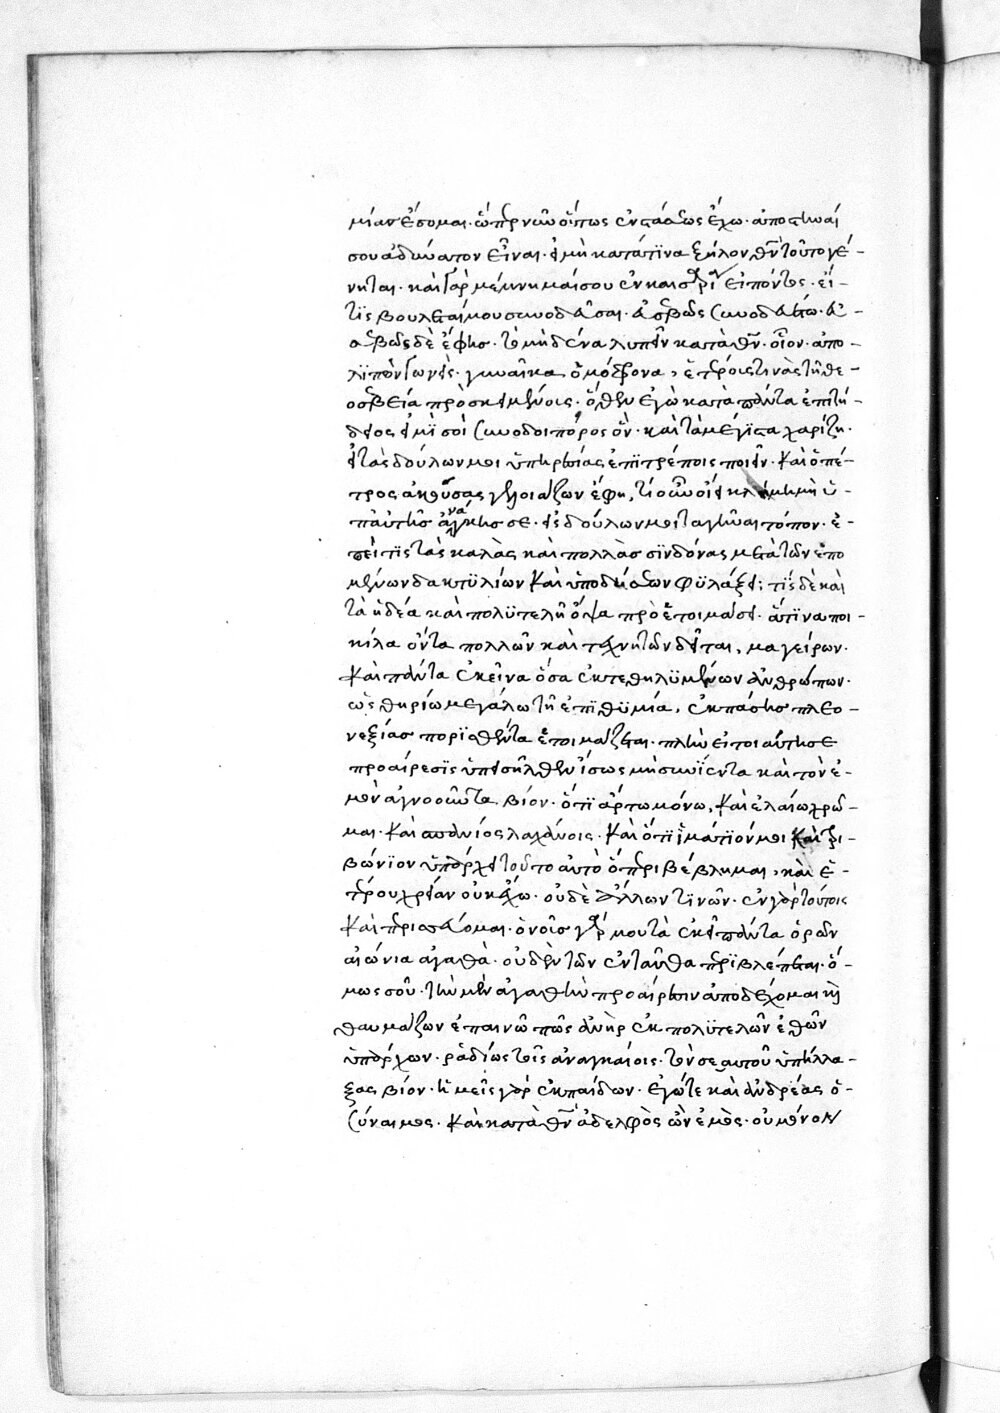 μίαν ἔσομαι. ὥσπερ νῦν ὄντως ἐνστατῶς ἔχω. ἀποστῆναί
σου ἀδύνατον εἶναι. εἰ μὴ κατά τινα ξῆλον θῦ τοῦτο γέ-
νηται. καὶ γὰρ μέμνημαί σου ἐν καισαρεία εἰπόντος. εἴ
τις βούλεταί μου συνοδεῦσαι. εὐσεβῶς συνοδευέτω. εὐ-
σεβῶς δὲ ἔφης. τὸ μηδένα λυπεῖν κατὰ θν. οἷον. ἀπο-
λιπόντα γονεῖς. γυναῖκα ὁμόφρονα, ἑτέρους τινὰς τῆ θε-
οσεβεία προσκειμένους. ὅθεν ἐγὼ κατὰ πάντα ἐπιτή-
δειος εἰμί σοι συνοδοιπόρος ὤν. καὶ τὰ μέγιστα χαρίζη.
εἰ τὰς δούλων μοι ὑπηρεσίας ἐπιτρέποις ποιεῖν. καὶ ὁ πέ-
τρος ἀκούσας γελοιάζων ἔφη, τί οὖν οἴει κλήμη μὴ ὑ-
π' αὐτῆς ἀνάγκης σε. εἰς δούλων μοι ταγῆναι τόπον. ἐ-
πεὶ τίς τὰς καλὰς καὶ πολλὰς σινδόνας μετὰ τῶν ἑπο
μένων δακτυλίων καὶ ὑποδημάτων φυλάξει; τίς δὲ καὶ
τὰ ἡδέα καὶ πολυτελῆ ὄψα προετοιμάσει. ἅτινα ποι-
κίλα ὄντα πολλῶν καὶ τεχνητῶν δεῖται, μαγείρων.
καὶ πάντα ἐκεῖνα ὅσα ἐκτεθηλυμένων ἀνθρώπων.
ὡς θηρίω μεγάλω τῆ ἐπιθυμία, ἐκ πάσης πλεο-
νεξίας πορισθέντα ἑτοιμάζεται. πλὴν εἰ τοιαύτη σε
προαίρεσις ὑπεισῆλθεν ἴσως μὴ συνϊέντα καὶ τὸν ἐ-
μὸν ἀγνοοῦντα βίον. ὅτι ἄρτω μόνω, καὶ ἐλαίω χρῶ-
μαι. καὶ σπανίως λαχάνοις. καὶ ὅτι ἱμάτιόν μοι καὶ τρι-
βώνιον ὑπάρχει τοῦτο αὐτὸ ὃ περιβέβλημαι, καὶ ἑ-
τέρου χρείαν οὐκ ἔχω. οὐδὲ ἄλλων τινῶν. ἐν γὰρ τούτοις
καὶ περισσεύομαι. ὁ νοῦς γάρ μου τὰ ἐκεῖ πάντα ὁρῶν
αἰώνια ἀγαθὰ. οὐδὲν τῶν ἐνταῦθα περιβλέπεται. ὅ-
μως σοῦ. τὴν μὲν ἀγαθὴν προαίρεσιν ἀποδέχομαι καὶ
θαυμάζων ἐπαινῶ πῶς ἀνὴρ ἐκ πολυτελῶν ἐθῶν
ὑπάρχων. ῥαδίως τοῖς ἀναγκαίοις. τὸν σεαυτοῦ ὑπήλλα-
ξας βίον. ἡμεῖς γὰρ ἐκ παίδων. ἐγώ τε καὶ ἀνδρέας ὁ
σύναιμος. καὶ κατὰ θν ἀδελφὸς ὢν ἐμὸς. οὐ μόνον